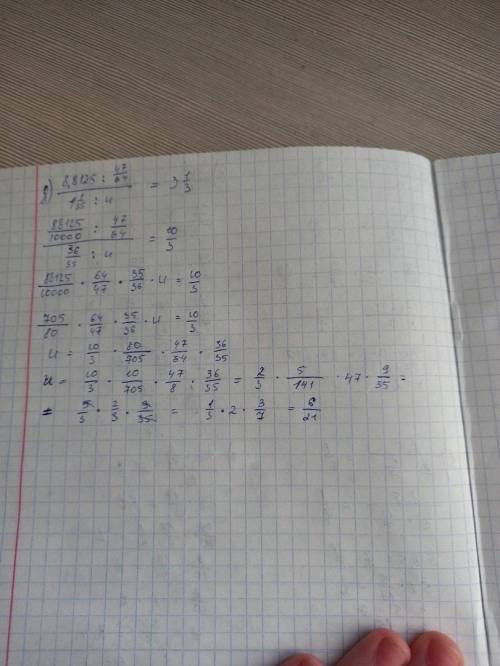 8) (8,8125 : 47/64) / (1 1/35 : u) = 3 1/3
(88125/10000 : 47/64) / (36/35 : u) = 10/3
88125/10000 · 64/47 · 35/36 · u = 10/3
705/80 · 64/47 · 35/36 · u = 10/3
u = 10/3 · 80/705 · 47/64 · 36/35
u = 10/3 · 10/705 · 47/8 · 36/35 = 2/3 · 5/141 · 47 · 9/35 =
= 5/3 · 2/3 · 9/35 = 1/3 · 2 · 3/7 = 6/21